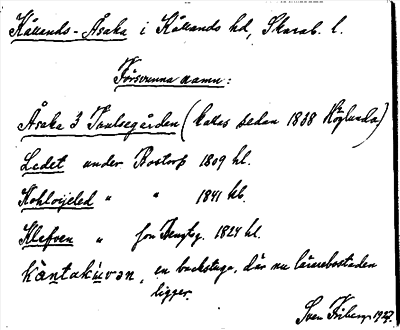 Kållands-Åsaka i Kållands hd, Skarab. l.
Försvunna namn:
Åsaka 3 Paulsegården (kallas sedan 1838 Höglunda)
Ledet under Bostorp 1809 hl.
Kohlvijeled " " 1841 hl.
Klefven " fru Bengtsg. 1824 hl.
kàntakúvən, en backstuga, där nu lärarebostaden
ligger.
Sven Friberg 1927.